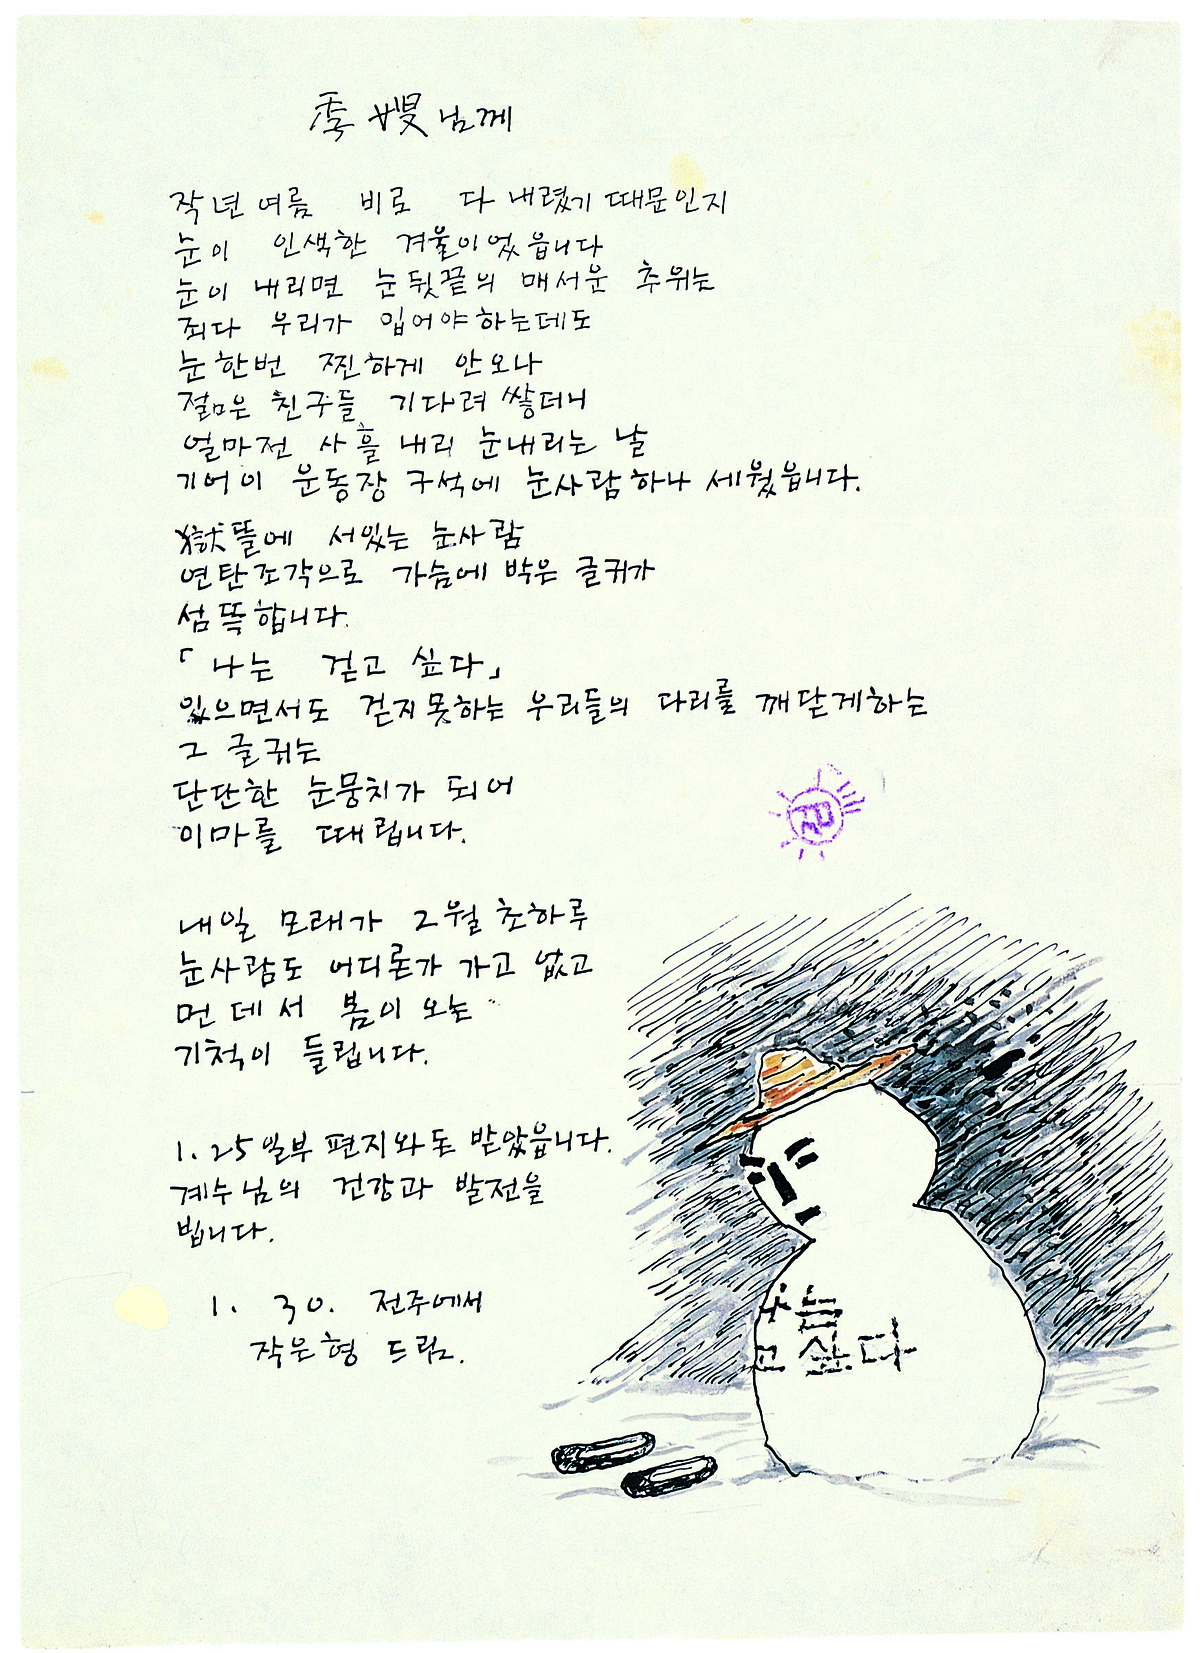 季嫂님께
작년여름 비로 다 내렸기 때문인지
눈이 인색한 겨울이었읍니다
눈이 내리면 눈뒷끝의 매서운 추위는
죄다 우리가 입어야하는데도
눈한번 찐하게 안오나
젊은 친구들 기다려 쌓더니
얼마전 사흘 내리 눈내리는 날
기어이 운동장 구석에 눈사람하나 세웠읍니다.
獄뜰에 서있는 눈사람
연탄조각으로 가슴에 박은 글귀가
섬뜩합니다.
「나는 걷고 싶다」
있으면서도 걷지못하는 우리들의 다리를 깨닫게하는
그 글귀는
단단한 눈뭉치가 되어
이마를 때립니다.
내일 모래가 2월 초하루
눈사람도 어디론가 가고 없고
먼데서 봄이 오는
기척이 들립니다.
1. 25일부 편지와 돈 받았읍니다.
계수님의 건강과 발전을
빕니다.
1. 30. 전주에서
작은형 드림.
나는
고 싶다